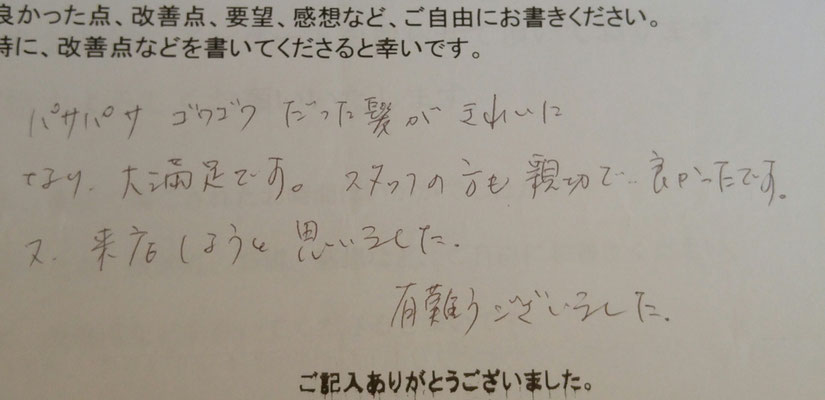 良かった点、改善点、要望、感想など、ご自由にお書きください。
特に、改善点などを書いてくださると幸いです。
パサパサ ゴワゴワ だった髪が きれいに
なり、大満足です。スタッフの方も 親切で 良かったです。
又、来店しようと 思いました。
有難うございました。
ご記入ありがとうございました。